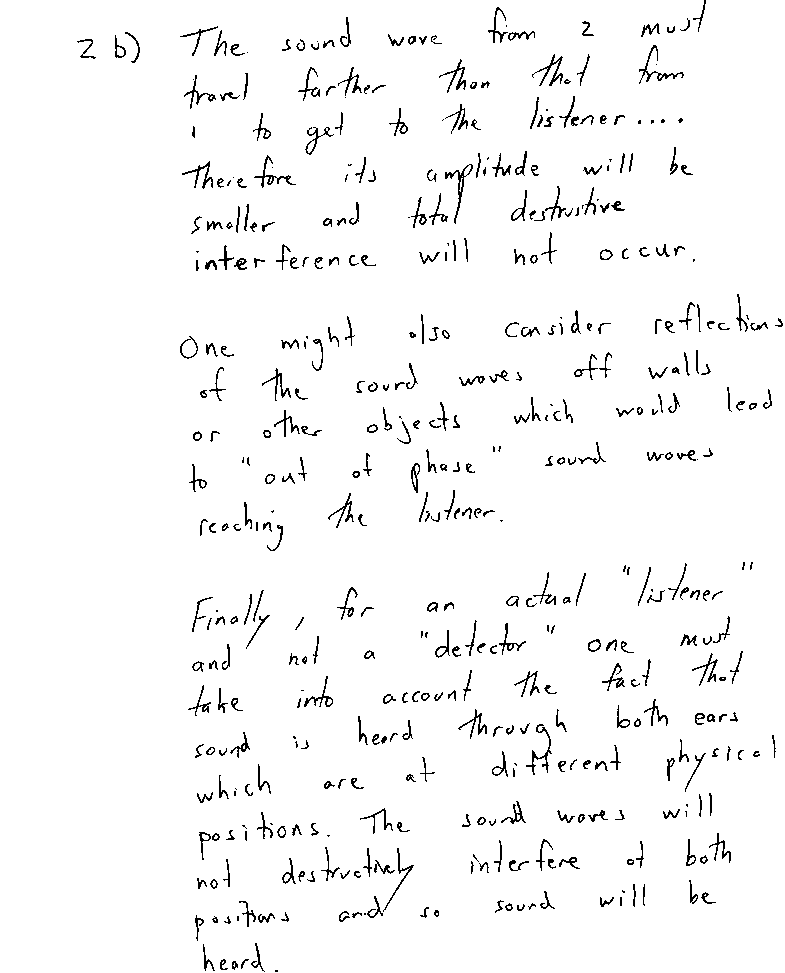 2 b) The sound wave from 2 must
travel farther than that from
1 to get to the listener....
Therefore its amplitude will be
smaller and total destrustive
interference will not occur.
One might also consider reflections
of the sound waves off walls
or other objects which would lead
to "out of phase" sound waves
reaching the listener.
Finally, for an actual "listener"
and not a "detector" one must
take into account the fact that
sound is heard through both ears
which are at different physical
positions. The sound waves will
not destructively interfere at both
positions and so sound will be
heard.